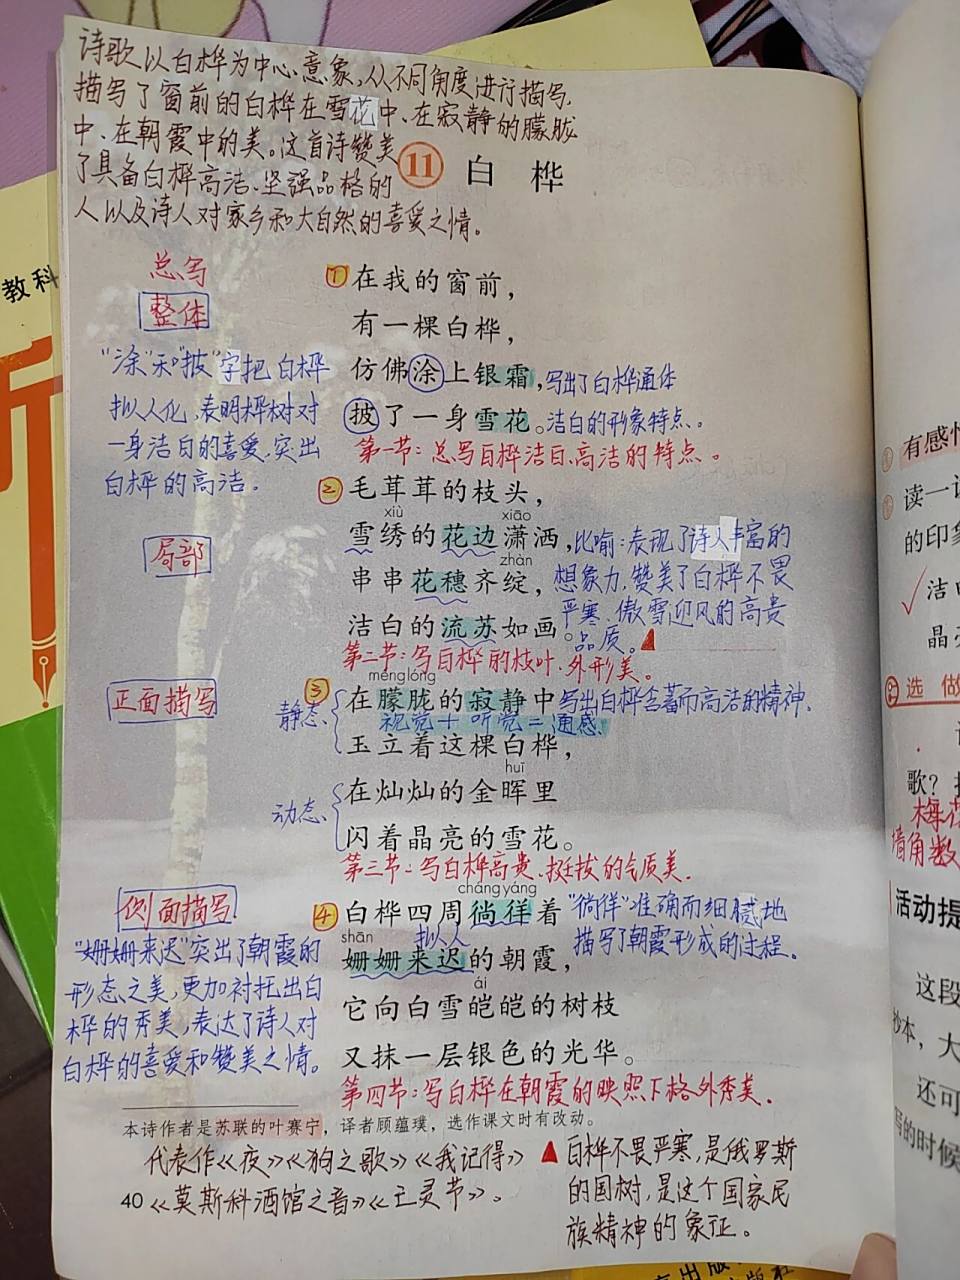 诗歌以白桦为中心意象,从不同角度进行描写,
描写了窗前的白桦在雪花中、在寂静的朦胧
中、在朝霞中的美。这首诗赞美
了具备白桦高洁、坚强品格的
人以及诗人对家乡和大自然的喜爱之情。
11 白 桦
教科
总写
整体
“涂”和“披”字把白桦
拟人化,表明桦树对
一身洁白的喜爱,突出
白桦的高洁。
①在我的窗前,
有一棵白桦,
仿佛涂上银霜,写出了白桦通体
披了一身雪花。洁白的形象特点。
第一节:总写白桦洁白、高洁的特点。
局部
②毛茸茸的枝头,
xiù xiāo
雪绣的花边潇洒,比喻:表现了诗人丰富的
zhàn
串串花穗齐绽,想象力,赞美了白桦不畏
严寒、傲雪迎风的高贵
洁白的流苏如画。品质。
第二节:写白桦的枝叶、外形美。
正面描写
méng lóng
③静态 在朦胧的寂静中写出白桦含蓄而高洁的精神.
视觉+听觉=通感
玉立着这棵白桦,
huī
动态 在灿灿的金晖里
闪着晶亮的雪花。
第三节:写白桦高贵、挺拔的气质美.
侧面描写
“姗姗来迟”突出了朝霞的
形态之美,更加衬托出白
桦的秀美,表达了诗人对
白桦的喜爱和赞美之情。
cháng yáng
④白桦四周徜徉着 “徜徉”准确而细腻地
描写了朝霞形成的过程.
shān 拟人
姗姗来迟的朝霞,
ái
它向白雪皑皑的树枝
又抹一层银色的光华。
第四节:写白桦在朝霞的映照下格外秀美.
本诗作者是苏联的叶赛宁,译者顾蕴璞,选作课文时有改动。
代表作《夜》《狗之歌》《我记得》
40 《莫斯科酒馆之音》《亡灵节》。
▲白桦不畏严寒,是俄罗斯
的国树,是这个国家民
族精神的象征。
有感情
读一读
的印象
洁白
晶亮
选 做
歌?
梅花
墙角数
活动提
这段
抄本,大
还可
写的时候
出版